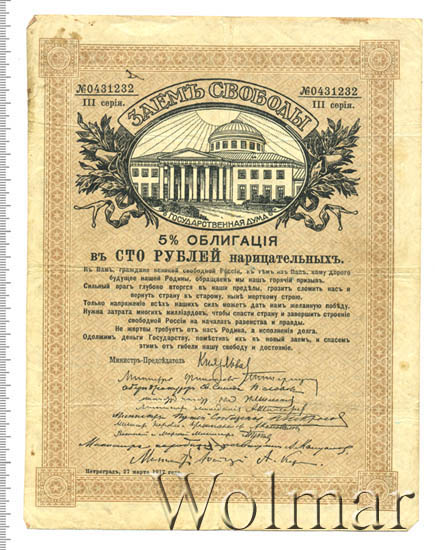 №0431232 №0431232
III серія. III серія.
ЗАЕМЪ СВОБОДЫ
ГОСУДАРСТВЕННАЯ ДУМА
5% ОБЛИГАЦІЯ
въ СТО РУБЛЕЙ нарицательныхъ.
Къ Вамъ, граждане великой свободной Россіи, къ тѣмъ изъ Васъ, кому дорого
будущее нашей Родины, обращаемъ мы нашъ горячій призывъ.
Сильный врагъ глубоко вторгся въ наши предѣлы, грозитъ сломить насъ и
вернуть страну къ старому, нынѣ мертвому строю.
Только напряженіе всѣхъ нашихъ силъ можетъ дать намъ желанную побѣду.
Нужна затрата многихъ милліардовъ, чтобы спасти страну и завершить строеніе
свободной Россіи на началахъ равенства и правды.
Не жертвы требуетъ отъ насъ Родина, а исполненія долга.
Одолжимъ деньги Государству, помѣстивъ ихъ въ новый заемъ, и спасемъ
этимъ отъ гибели нашу свободу и достояніе.
Министръ-Предсѣдатель Князь Львовъ
Министръ
Петроградъ, 27 марта 1917 года.
Wolmar